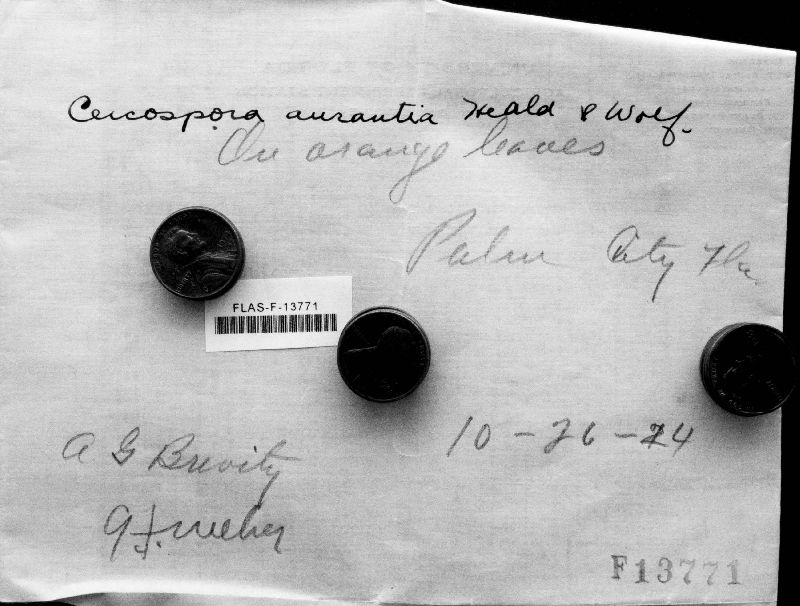 Cercospora aurantia Heald & Wolf.
On orange leaves
Palm City Fla
FLAS-F-13771
10-26-24
A G Brevity
G.F. Weber
F13771